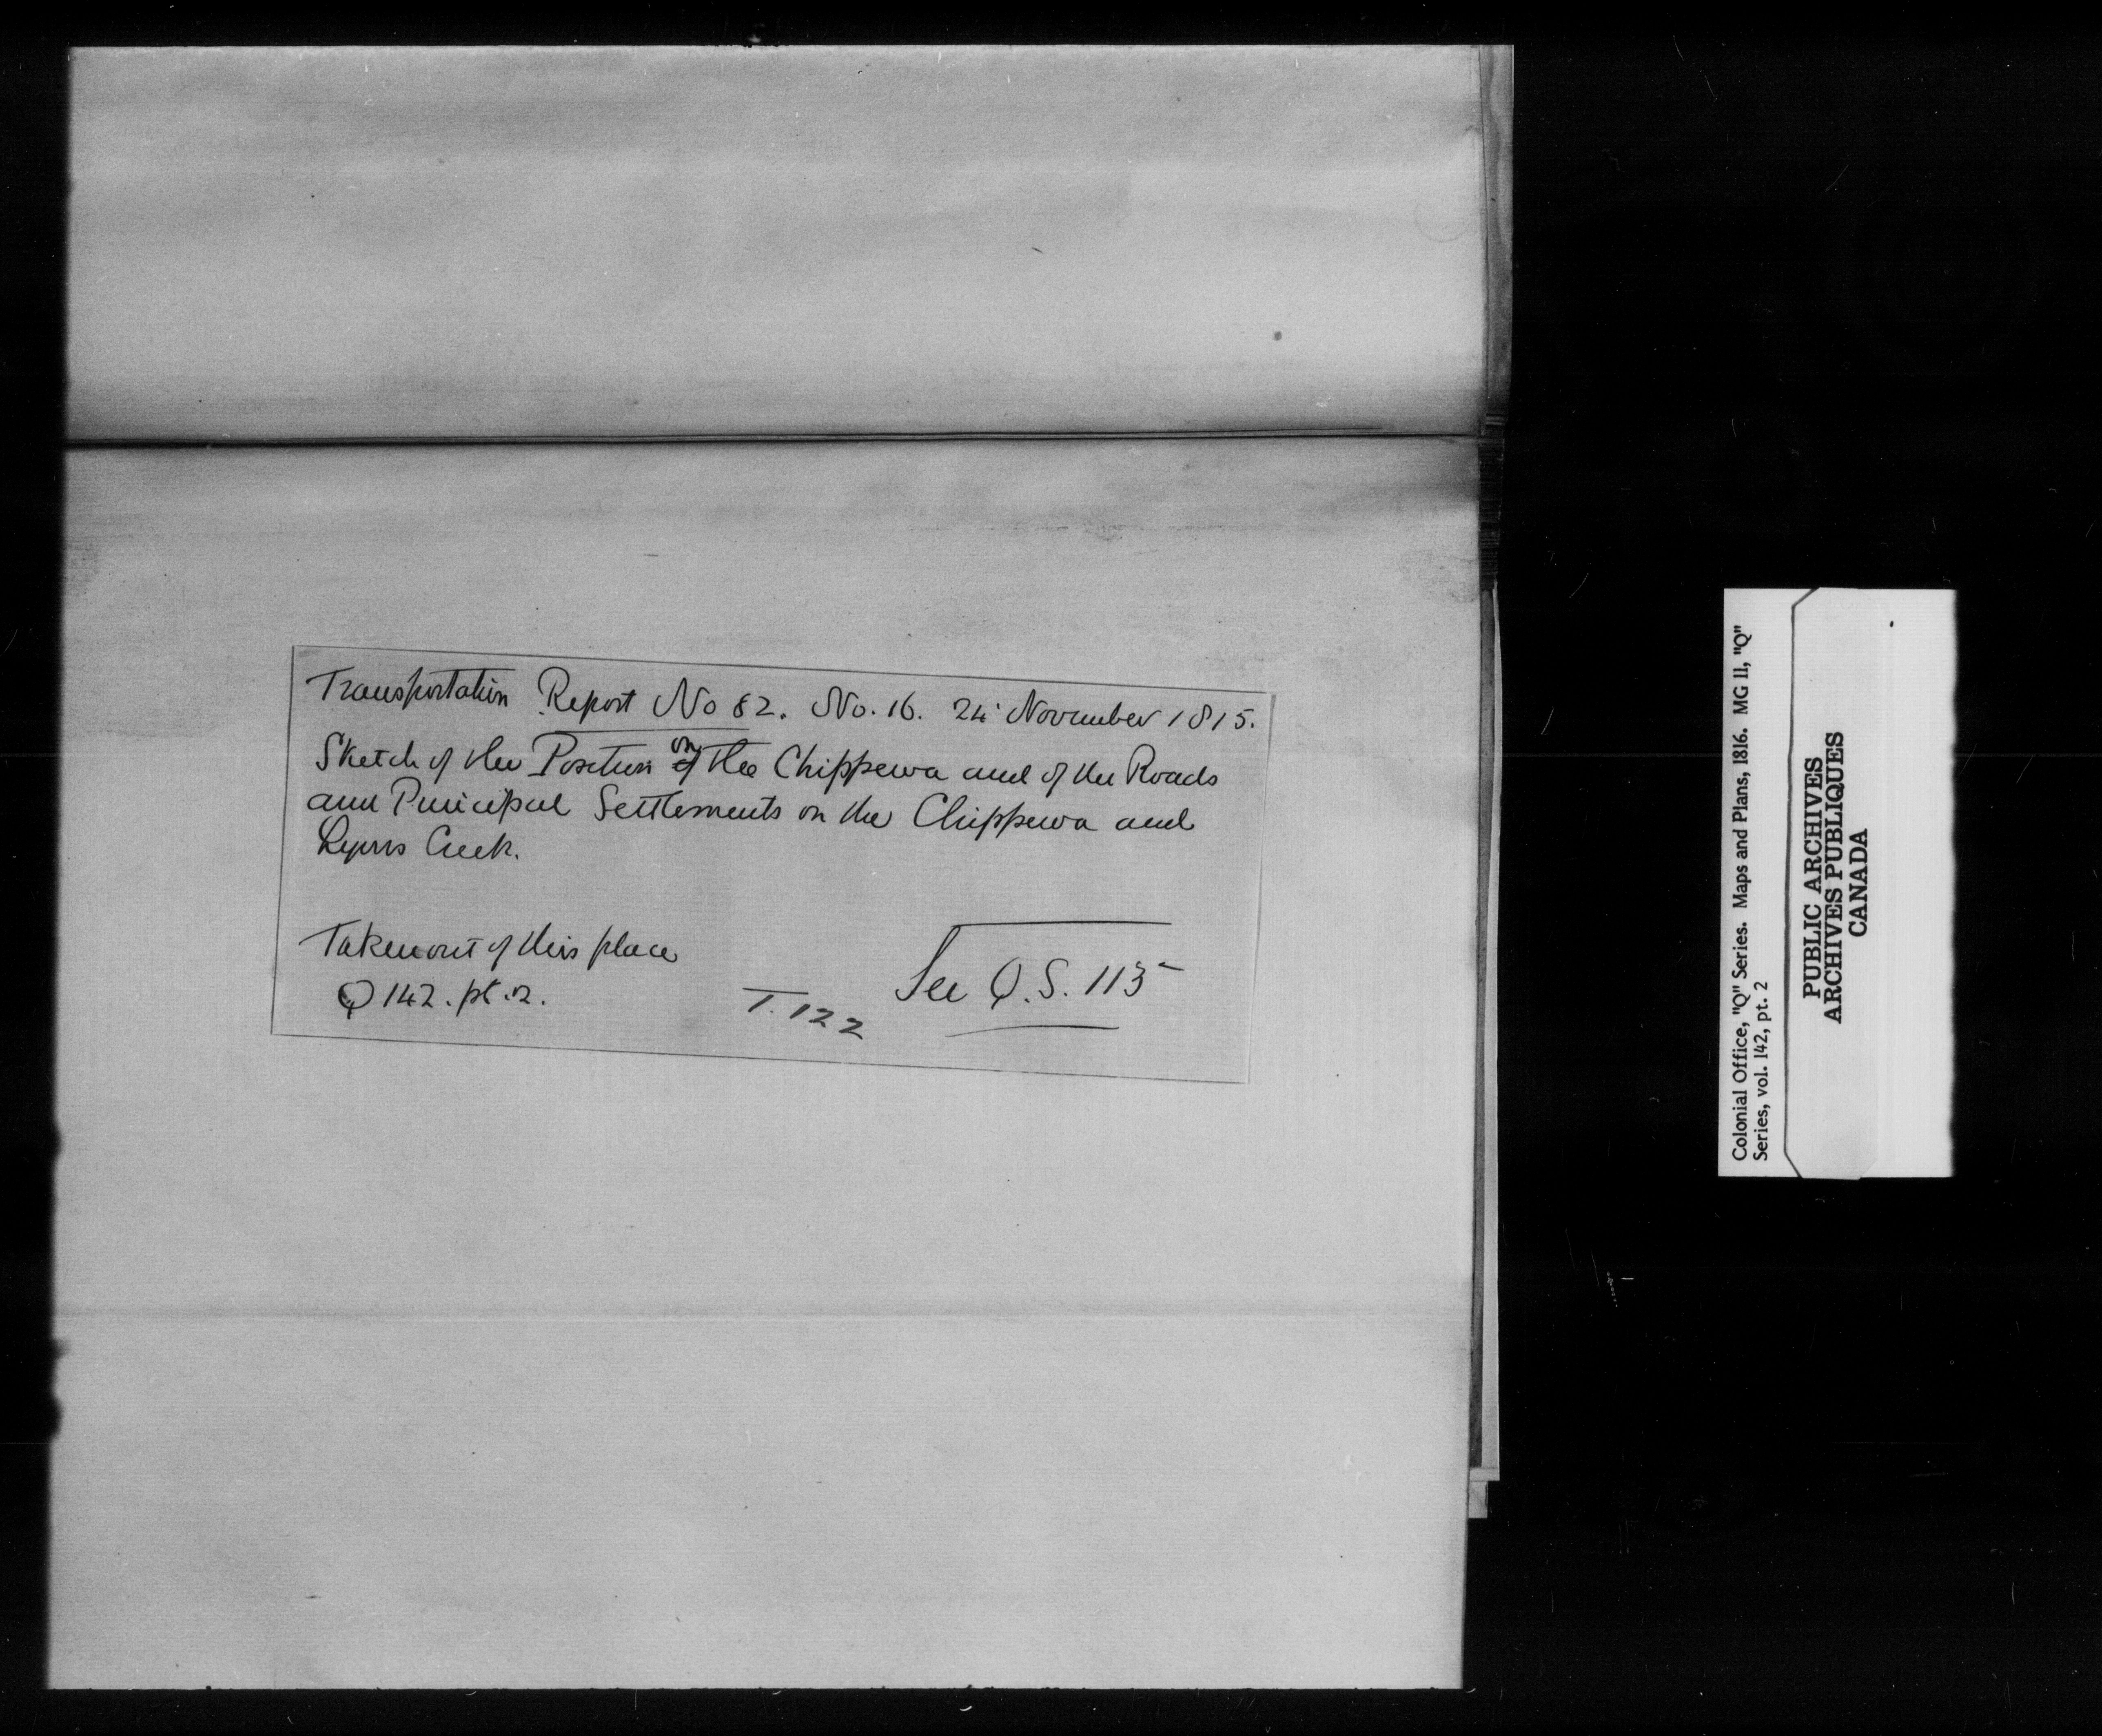 Transportation Report No 82. No. 16. 24 November 1815.
Sketch of the Position on the Chippewa and of the Roads
and Principal Settlements on the Chippewa and
Lyons Creek.
Taken out of this place
Q 142. pt. 2.
T. 122
See Q.S. 115
Colonial Office, "Q" Series. Maps and Plans, 1816. MG 11, "Q"
Series, vol. 142, pt. 2
PUBLIC ARCHIVES
ARCHIVES PUBLIQUES
CANADA